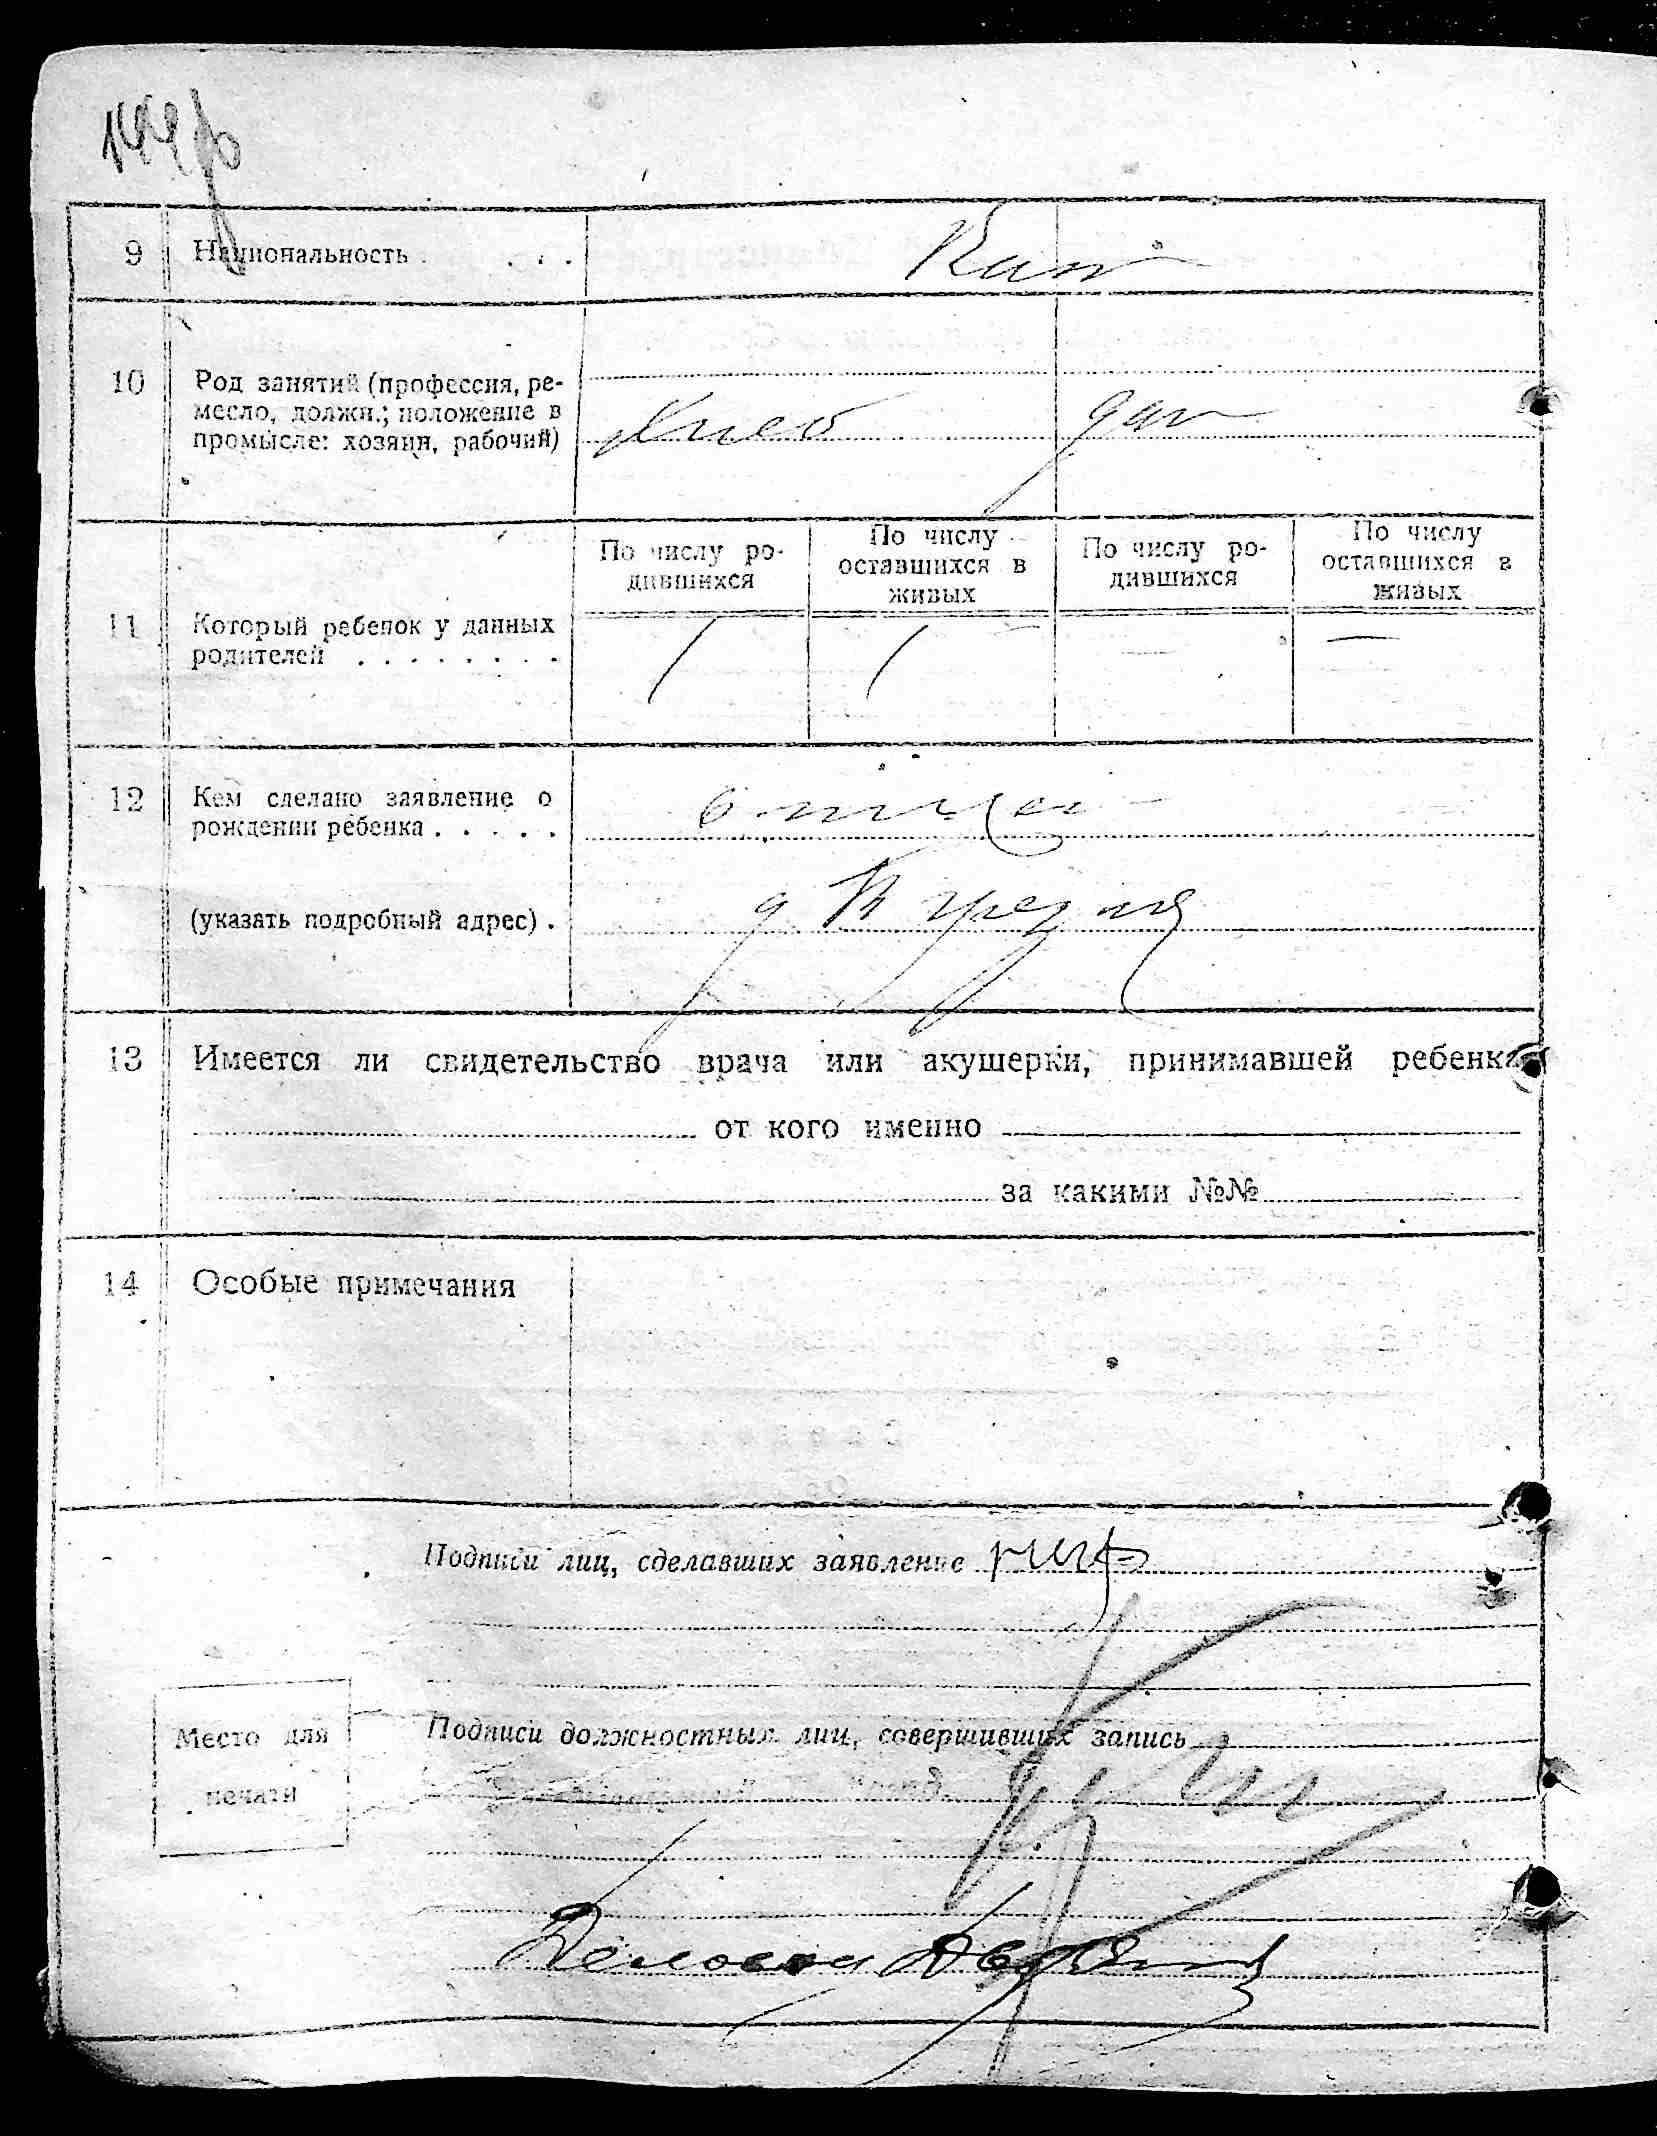 9 Национальность . . . .
10 Род занятий (профессия, ре-
месло, должн.; положение в
промысле: хозяин, рабочий)
Хлеб
По числу ро-
дившихся
По числу
оставшихся в
живых
По числу ро-
дившихся
По числу
оставшихся в
живых
11 Который ребенок у данных
родителей . . . . . . . .
1 1 — —
12 Кем сделано заявление о
рождении ребенка . . . . .
отцом
(указать подробный адрес) .
д
13 Имеется ли свидетельство врача или акушерки, принимавшей ребенка
от кого именно
за какими №№
14 Особые примечания
Подписи лиц, сделавших заявление
Место для
печати
Подписи должностных лиц, совершивших запись